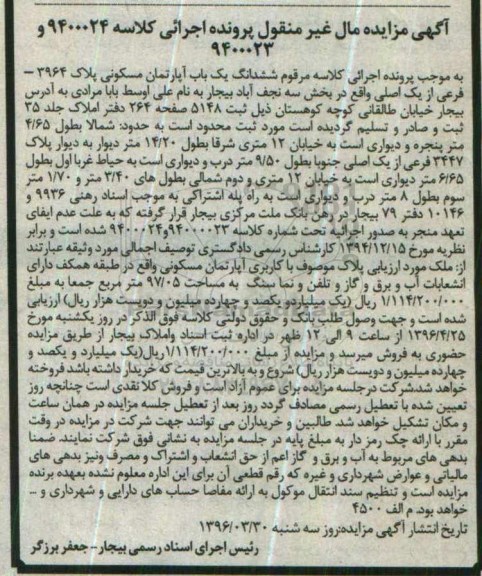 آگهی مزایده مال غیر منقول پرونده اجرائی کلاسه ۹۴۰۰۰۲۴ و
۹۴۰۰۰۲۳
به موجب پرونده اجرائی کلاسه مرقوم ششدانگ یک باب آپارتمان مسکونی پلاک ۳۹۶۴ –
فرعی از یک اصلی واقع در بخش سه نجف آباد بیجار به نام علی اوسط بابا مرادی به آدرس
بیجار خیابان طالقانی کوچه کوهستان ذیل ثبت ۵۱۴۸ صفحه ۲۶۴ دفتر املاک جلد ۳۵
ثبت و صادر و تسلیم گردیده است مورد ثبت محدود است به حدود: شمالا بطول ۴/۶۵
متر پنجره و دیواری است به خیابان ۱۲ متری شرقا بطول ۱۴/۲۰ متر دیوار به دیوار پلاک
۳۴۴۷ فرعی از یک اصلی جنوبا بطول ۹/۵۰ متر درب و دیواری است به حیاط غربا اول بطول
۶/۶۵ متر دیواری است به خیابان ۱۲ متری و دوم شمالی بطول های ۳/۴۰ متر و ۱/۷۰ متر
سوم بطول ۸ متر درب و دیواری است به راه پله اشتراکی به موجب اسناد رهنی ۹۹۳۶ و
۱۰۱۴۶ دفتر ۷۹ بیجار در رهن بانک ملت مرکزی بیجار قرار گرفته که به علت عدم ایفای
تعهد منجر به صدور اجرائیه تحت شماره کلاسه ۹۴۰۰۰۲۳و۹۴۰۰۰۲۴ شده است و برابر
نظریه مورخ ۱۳۹۴/۱۲/۱۵ کارشناس رسمی دادگستری توصیف اجمالی مورد وثیقه عبارتند
از: ملک مورد ارزیابی پلاک موصوف با کاربری آپارتمان مسکونی واقع در طبقه همکف دارای
انشعابات آب و برق و گاز و تلفن و نما سنگ به مساحت ۹۷/۰۵ متر مربع جمعا به مبلغ
۱/۱۱۴/۲۰۰/۰۰۰ ریال (یک میلیاردو یکصد و چهارده میلیون و دویست هزار ریال) ارزیابی
شده است و جهت وصول طلب بانک و حقوق دولتی کلاسه فوق الذکر در روز یکشنبه مورخ
۱۳۹۶/۴/۲۵ از ساعت ۹ الی ۱۲ ظهر در اداره ثبت اسناد واملاک بیجار از طریق مزایده
حضوری به فروش میرسد و مزایده از مبلغ ۱/۱۱۴/۲۰۰/۰۰۰ریال(یک میلیارد و یکصد و
چهارده میلیون و دویست هزار ریال) شروع و به بالاترین قیمت که خریدار داشته باشد فروخته
خواهد شد.شرکت درجلسه مزایده برای عموم آزاد است و فروش کلا نقدی است چنانچه روز
تعیین شده با تعطیل رسمی مصادف گردد روز بعد از تعطیل جلسه مزایده در همان ساعت
و مکان تشکیل خواهد شد. طالبین و خریداران می توانند جهت شرکت در مزایده در وقت
مقرر با ارائه چک رمز دار به مبلغ پایه در جلسه مزایده به نشانی فوق شرکت نمایند. ضمنا
بدهی های مربوط به آب و برق و گاز اعم از حق انشعاب و اشتراک و مصرف ونیز بدهی های
مالیاتی و عوارض شهرداری و غیره که رقم قطعی آن برای این اداره معلوم نشده بعهده برنده
مزایده است و تنظیم سند انتقال موکول به ارائه مفاصا حساب های دارایی و شهرداری و ...
خواهد بود. م الف ۴۵۰۰
تاریخ انتشار آگهی مزایده:روز سه شنبه ۱۳۹۶/۰۳/۳۰
رئیس اجرای اسناد رسمی بیجار – جعفر برزگر